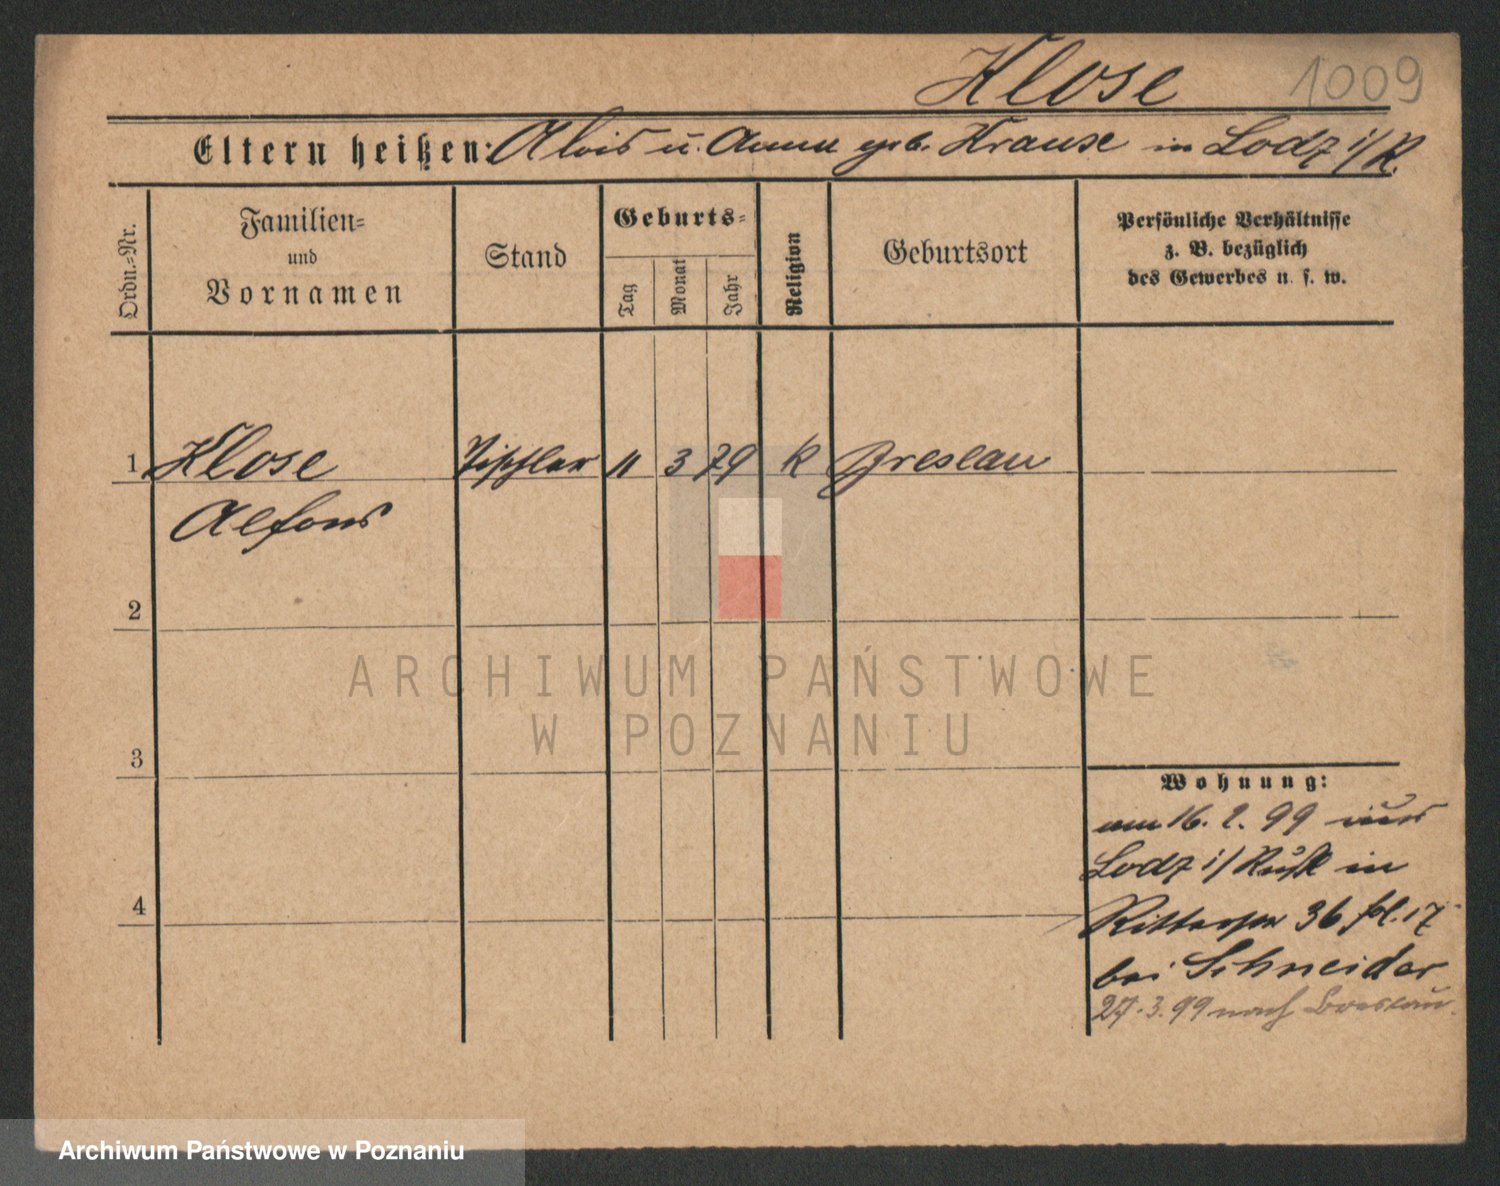 Klose 1009
Eltern heißen: Alois u. Anna geb. Krause in Lodz i/R.
Ordn.-Nr.
Familien-
und
Vornamen
Stand
Geburts-
Tag
Monat
Jahr
Religion
Geburtsort
Persönliche Verhältnisse
z. B. bezüglich
des Gewerbes u. s. w.
1 Klose Tischler 11 3 79 K Breslau
Alfons
2
ARCHIWUM PAŃSTWOWE
W POZNANIU
3
Wohnung:
am 16. 2. 99 aus
Lodz i/Rußl in
Ritterstr 36 fol. 17
bei Schneider
27.3.99 nach Breslau.
4
Archiwum Państwowe w Poznaniu